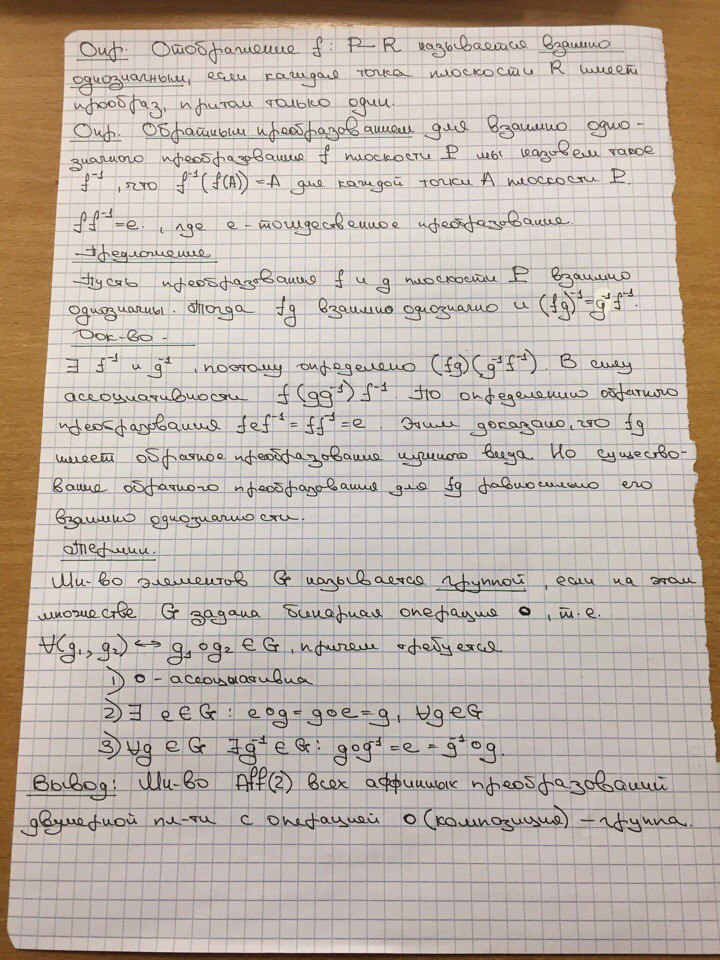 Опр. Отображение f: P→R называется взаимно
однозначным, если каждая точка плоскости R имеет
прообраз, притом только один.
Опр. Обратным преобразованием для взаимно одно-
значного преобразования f плоскости P мы назовем такое
f⁻¹, что f⁻¹(f(A))=A для каждой точки A плоскости P.
ff⁻¹=e, где e-тождественное преобразование.
Предложение
Пусть преобразования f и g плоскости P взаимно
однозначны. Тогда fg взаимно однозначно и (fg)⁻¹=g⁻¹f⁻¹.
Док-во-
∃ f⁻¹ и g⁻¹, поэтому определено (fg)(g⁻¹f⁻¹). В силу
ассоциативности f(gg⁻¹)f⁻¹. По определению обратного
преобразования fef⁻¹=ff⁻¹=e. Этим доказано, что fg
имеет обратное преобразование нужного вида. Но существо-
вание обратного преобразования для fg равносильно его
взаимно однозначности.
Термин.
Мн-во элементов G называется группой, если на этом
множестве G задана бинарная операция o, т.е.
∀(g₁, g₂) ↔ g₁ o g₂ ∈ G, причем требуется
1) o-ассоциативна
2) ∃ e∈G: e o g = g o e = g, ∀g∈G
3) ∀g ∈G ∃g⁻¹∈G: g o g⁻¹ = e = g⁻¹ o g.
Вывод: Мн-во Aff(2) всех аффинных преобразований
двумерной пл-ти с операцией o (композиция) - группа.